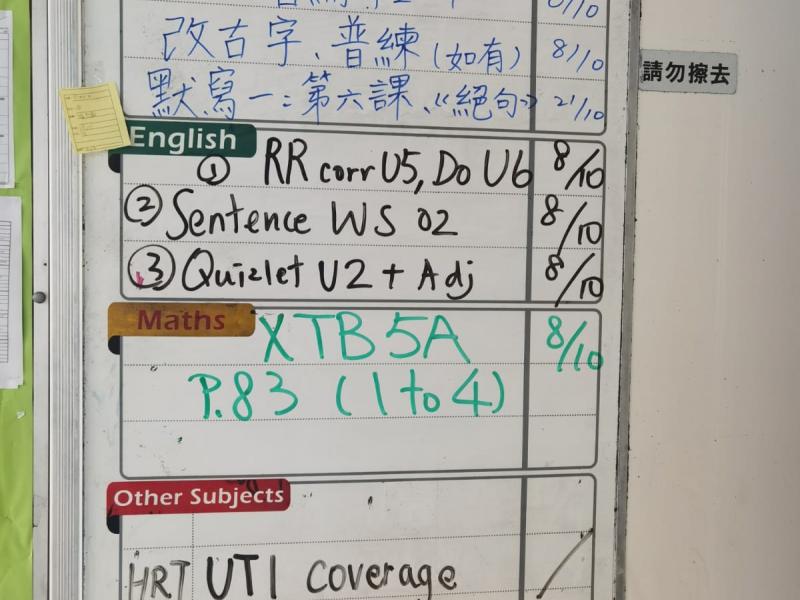 8/10
改古字、普練(如有) 8/10
默寫一:第六課、《絕句》 21/10
English
① RR corr U5, Do U6 8/10
② Sentence WS 02 8/10
③ Quizlet U2 + Adj 8/10
Maths
XTB 5A 8/10
P.83 (1 to 4)
Other Subjects
HRT UT1 coverage
請勿擦去